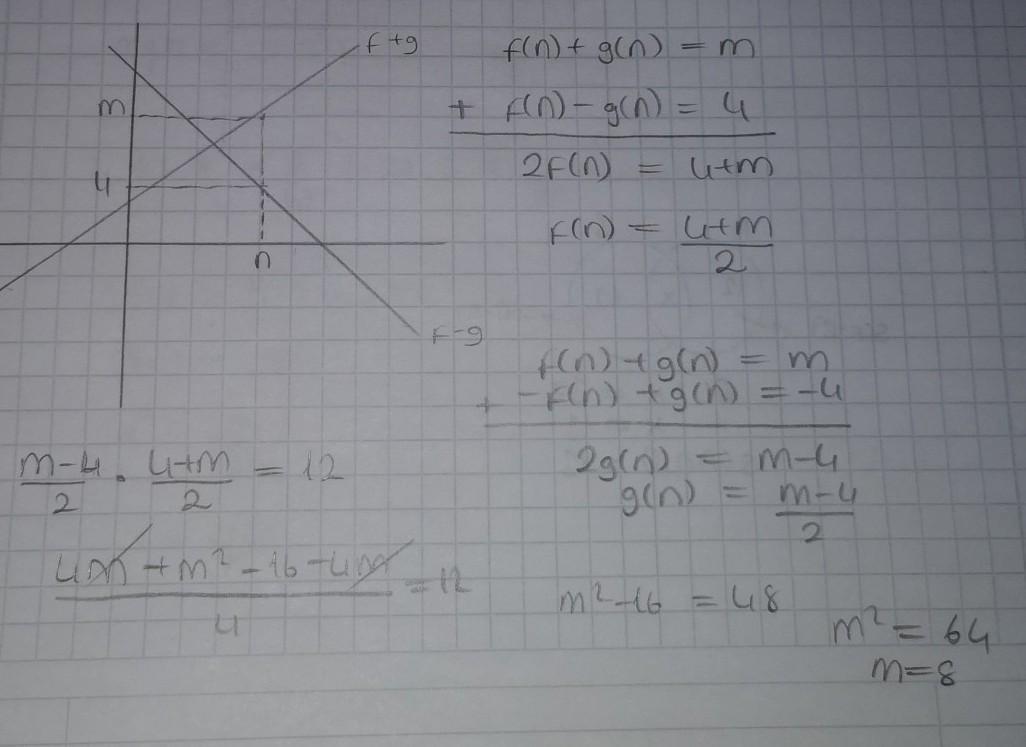 f+g
m
4
n
f-g
f(n) + g(n) = m
+ f(n) - g(n) = 4
2f(n) = 4+m
f(n) = 4+m / 2
f(n) + g(n) = m
+ -f(n) + g(n) = -4
2g(n) = m-4
g(n) = m-4 / 2
m-4 / 2 . 4+m / 2 = 12
4m + m² - 16 - 4m / 4 = 12
m² - 16 = 48
m² = 64
m = 8